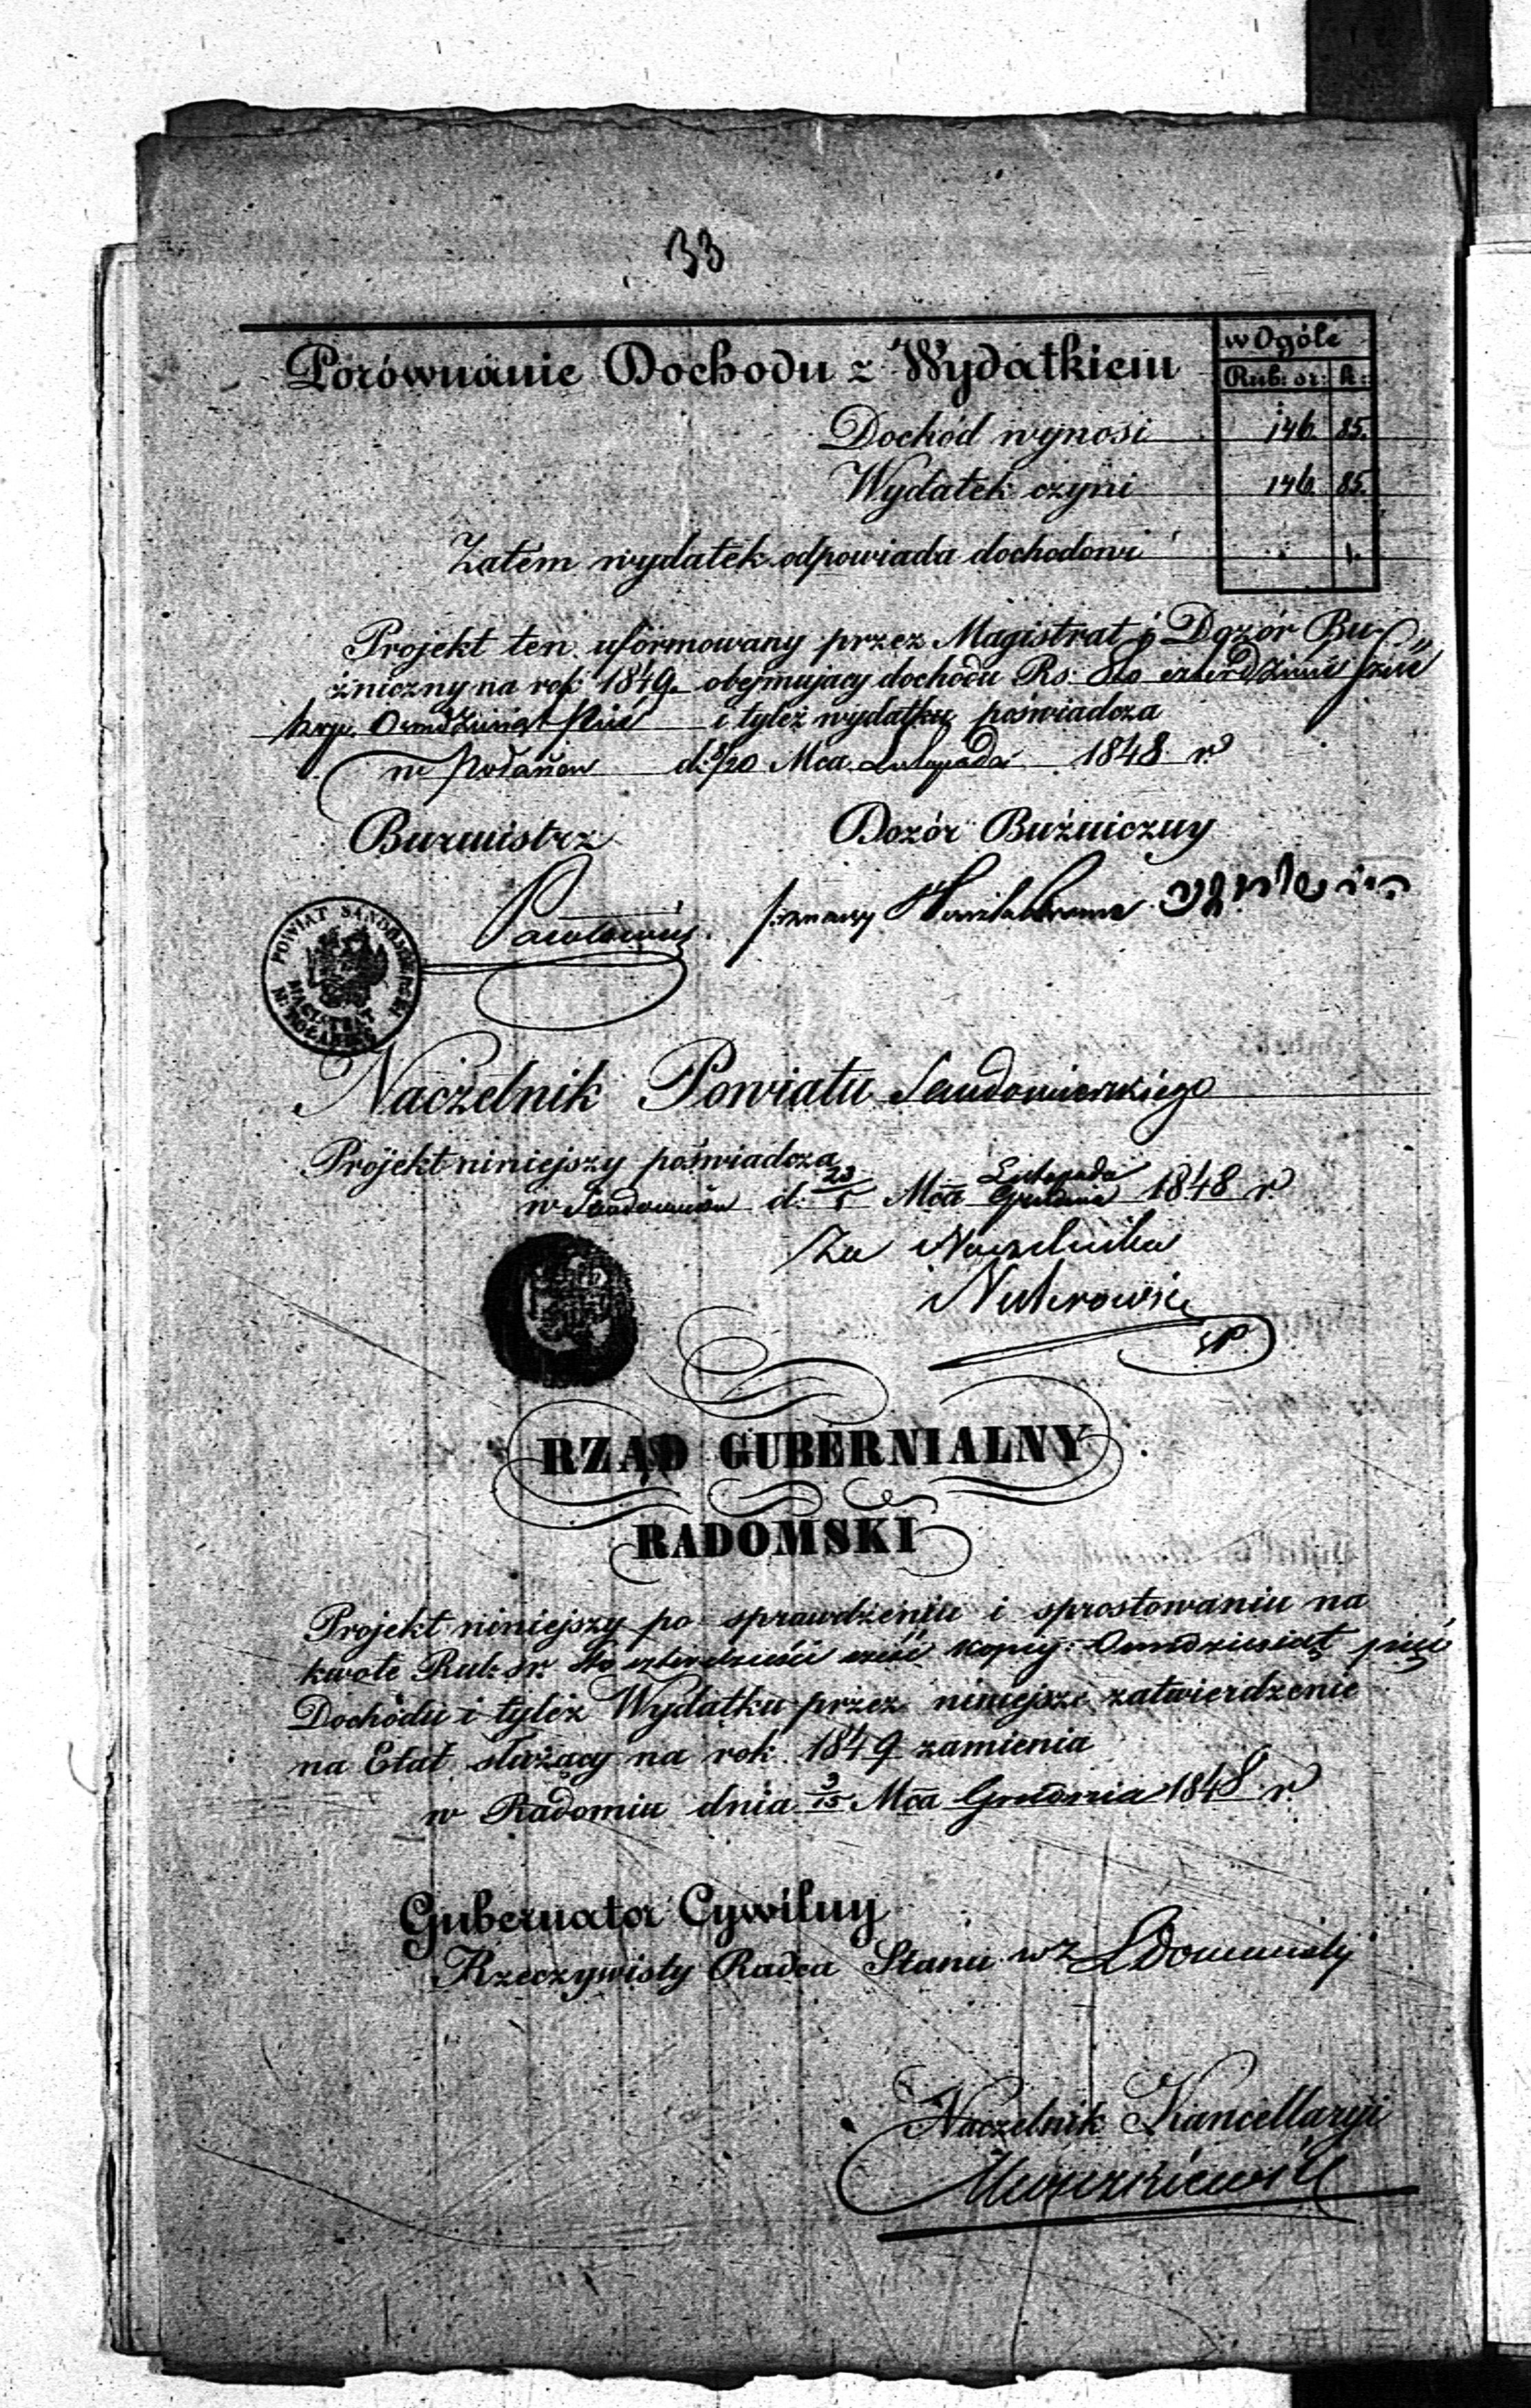 33
Porównanie Dochodu z Wydatkiem
w Ogóle
Rub: sr: k:
Dochód wynosi 146. 85.
Wydatek czyni 146. 85.
Zatem wydatek odpowiada dochodowi
Projekt ten uformowany przez Magistrat i Dozór Bu-
źniczny na rok 1849. obejmujący dochodu Rs: Sto czterdzieści sześć
kop. Ośmdziesiąt pięć i tyleż wydatku poświadcza
w Połańcu d: 8/20 Mca Listopada 1848 r.
Burmistrz
Dozór Buźniczny
POWIAT SANDOMIERSKI
MAGISTRAT
M. POŁANIEC
Naczelnik Powiatu Sandomierskiego
Projekt niniejszy poświadcza
w Sandomierzu d: 23/5 Mca Listopada/Grudnia 1848 r.
Za Naczelnika
RZĄD GUBERNIALNY
RADOMSKI
Projekt niniejszy po sprawdzeniu i sprostowaniu na
kwotę Rub: sr. Sto czterdzieści sześć kopiy: Ośmdziesiąt pięć
Dochodu i tyleż Wydatku przez niniejsze zatwierdzenie
na Etat służący na rok 1849 zamienia
w Radomiu dnia 3/15 Mca Grudnia 1848 r.
Gubernator Cywilny
Rzeczywisty Radca Stanu wz
Naczelnik Kancellaryi